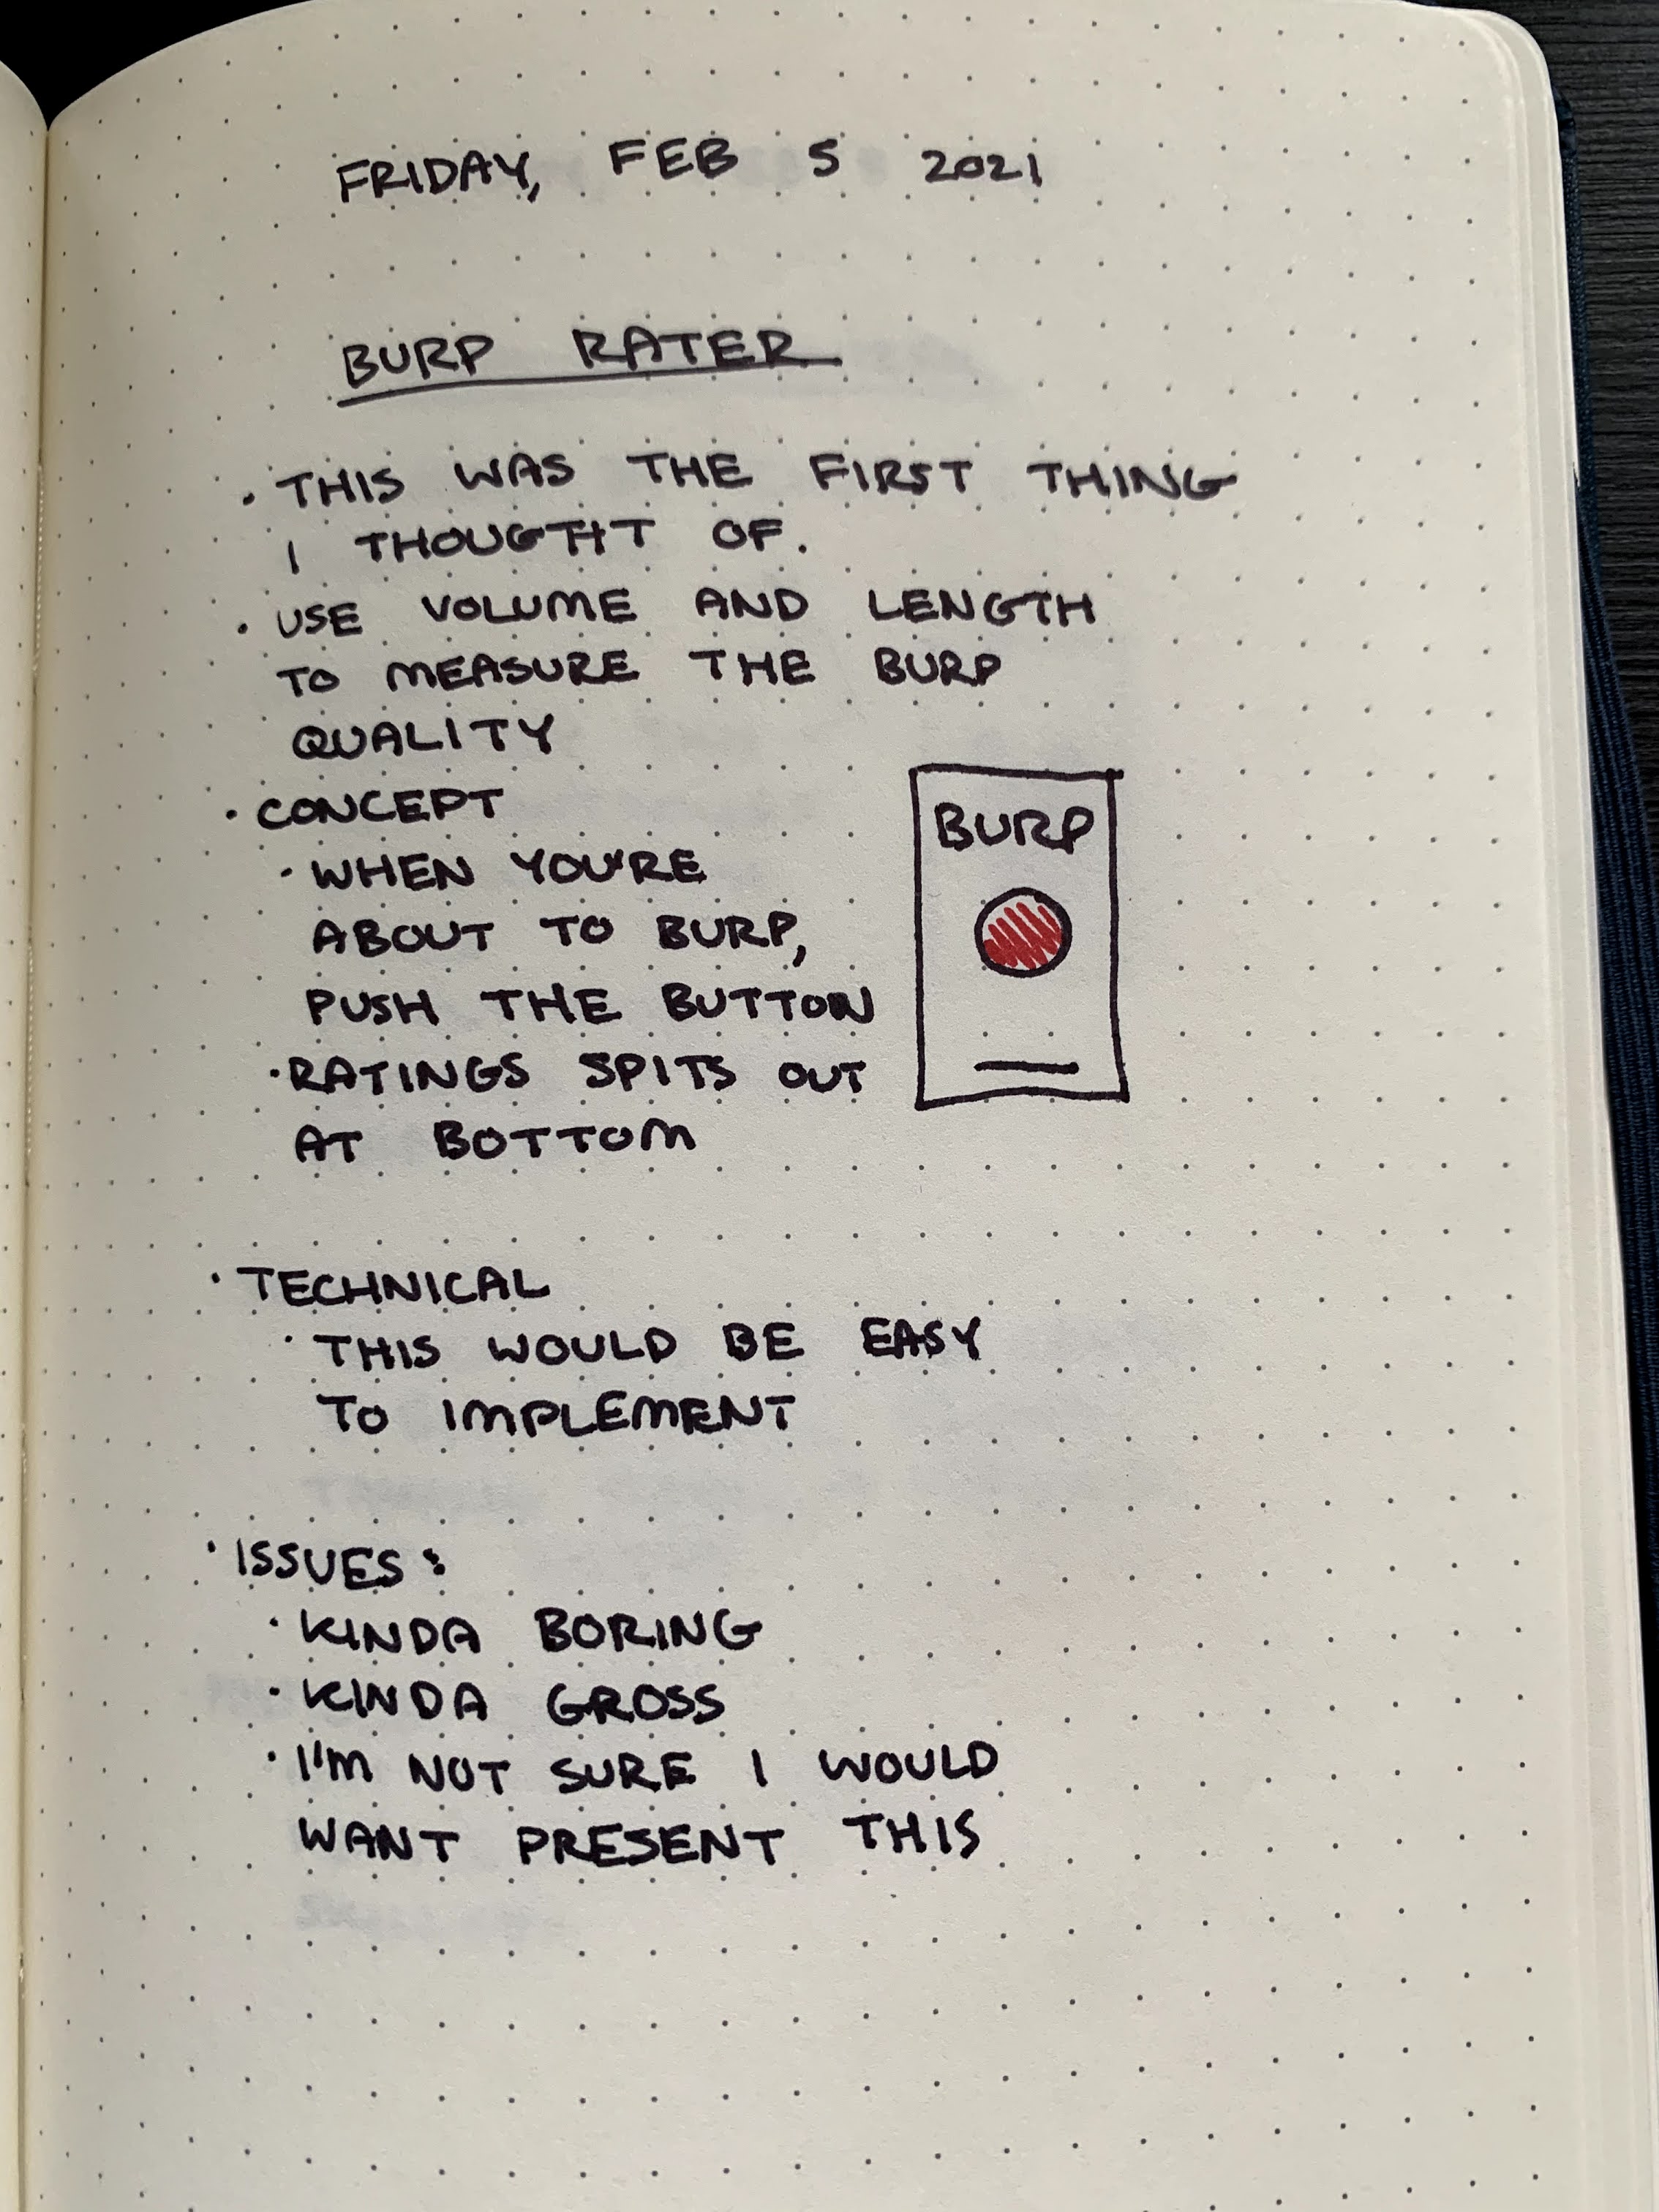 FRIDAY, FEB 5 2021
BURP RATER
· THIS WAS THE FIRST THING
I THOUGHT OF.
· USE VOLUME AND LENGTH
TO MEASURE THE BURP
QUALITY
· CONCEPT
· WHEN YOU'RE
ABOUT TO BURP,
PUSH THE BUTTON
· RATINGS SPITS OUT
AT BOTTOM
BURP
· TECHNICAL
· THIS WOULD BE EASY
TO IMPLEMENT
· ISSUES:
· KINDA BORING
· KINDA GROSS
· I'M NOT SURE I WOULD
WANT PRESENT THIS